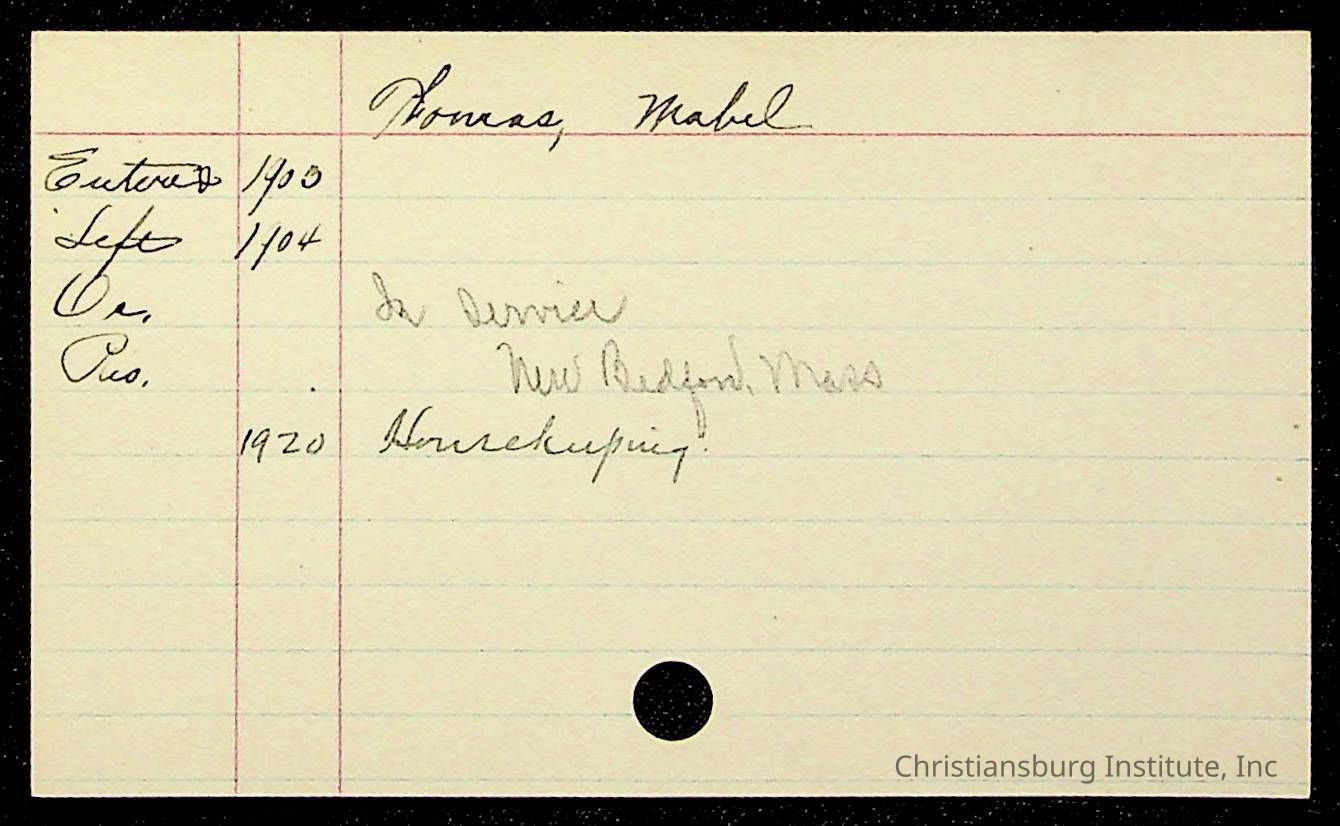 Thomas, Mabel
Entered 1903
Left 1904
Oc. In Service
Res. New Bedford, Mass
1920 Housekeeping
Christiansburg Institute, Inc